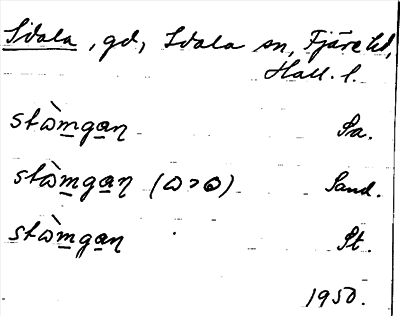 Idala, gd, Idala sn, Fjäre hd,
Hall. l.
stɷ̀mgan Sa.
stɷ̀mgan (ɷ>ɵ) Sand.
stɷ̀mgan St.
1950.